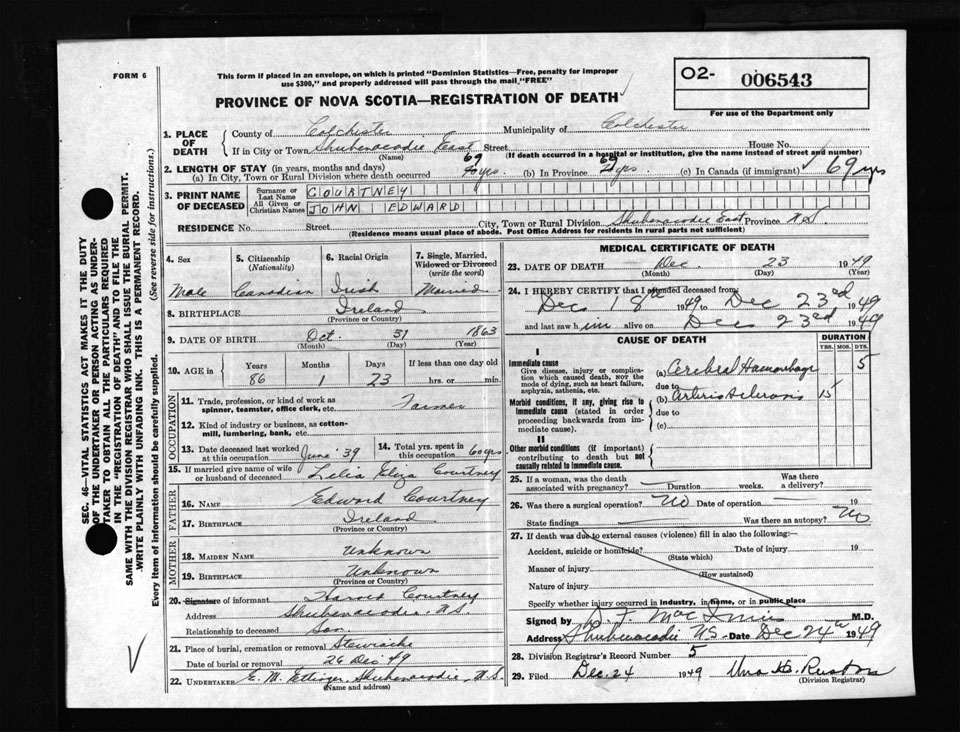 FORM 6
This form if placed in an envelope, on which is printed "Dominion Statistics—Free, penalty for improper
use $300," and properly addressed will pass through the mail, "FREE"
O2- 006543
For use of the Department only
PROVINCE OF NOVA SCOTIA—REGISTRATION OF DEATH
1. PLACE OF DEATH { County of Colchester Municipality of Colchester
If in City or Town Shubenacadie East Street House No.
(Name) (If death occurred in a hospital or institution, give the name instead of street and number)
2. LENGTH OF STAY (in years, months and days)
(a) In City, Town or Rural Division where death occurred 69 yrs. (b) In Province 69 yrs. (c) In Canada (if immigrant) 69 yrs
3. PRINT NAME OF DECEASED { Surname or Last Name COURTNEY
All Given or Christian Names JOHN EDWARD
RESIDENCE No. Street City, Town or Rural Division Shubenacadie East Province N.S.
(Residence means usual place of abode. Post Office Address for residents in rural parts not sufficient)
4. Sex Male
5. Citizenship (Nationality) Canadian
6. Racial Origin Irish
7. Single, Married, Widowed or Divorced (write the word) Married
8. BIRTHPLACE Ireland
(Province or Country)
9. DATE OF BIRTH Oct. 31 1863
(Month) (Day) (Year)
10. AGE in { Years 86 Months 1 Days 23 If less than one day old hrs. or min.
OCCUPATION
11. Trade, profession, or kind of work as
spinner, teamster, office clerk, etc. Farmer
12. Kind of industry or business, as cotton-
mill, lumbering, bank, etc.
13. Date deceased last worked at this occupation June '39
14. Total yrs. spent in this occupation 60 yrs
15. If married give name of wife
or husband of deceased Lelia Eliza Courtney
FATHER
16. NAME Edward Courtney
17. BIRTHPLACE Ireland
(Province or Country)
MOTHER
18. MAIDEN NAME Unknown
19. BIRTHPLACE Unknown
(Province or Country)
20. Signature of informant Harold Courtney
Address Shubenacadie, N.S.
Relationship to deceased Son
21. Place of burial, cremation or removal Stewiacke
Date of burial or removal 26 Dec '49
22. UNDERTAKER E. M. Ettinger, Shubenacadie, N.S.
(Name and address)
MEDICAL CERTIFICATE OF DEATH
23. DATE OF DEATH Dec. 23 1949
(Month) (Day) (Year)
24. I HEREBY CERTIFY that I attended deceased from
Dec 18th 1949 to Dec 23rd 1949
and last saw him alive on Dec 23rd 1949
CAUSE OF DEATH
DURATION
YRS. MOS. DYS.
I
Immediate cause
Give disease, injury or complica-
tion which caused death, not the
mode of dying, such as heart failure,
asphyxia, asthenia, etc.
(a) Cerebral Haemorrhage 5
due to
Morbid conditions, if any, giving rise to
immediate cause (stated in order
proceeding backwards from im-
mediate cause).
(b) Arteriosclerosis 15
due to
(c)
II
Other morbid conditions (if important)
contributing to death but not
causally related to immediate cause.
25. If a woman, was the death
associated with pregnancy? Duration weeks. Was there a delivery?
26. Was there a surgical operation? No Date of operation 19
State findings Was there an autopsy? No
27. If death was due to external causes (violence) fill in also the following:—
Accident, suicide or homicide? Date of injury 19
(State which)
Manner of injury
(How sustained)
Nature of injury
Specify whether injury occurred in industry, in home, or in public place
Signed by MacInnis M.D.
Address Shubenacadie N.S. Date Dec 24th 1949
28. Division Registrar's Record Number 5
29. Filed Dec. 24 1949
(Division Registrar)
SEC. 46—VITAL STATISTICS ACT MAKES IT THE DUTY
OF THE UNDERTAKER OR PERSON ACTING AS UNDER-
TAKER TO OBTAIN ALL THE PARTICULARS REQUIRED
IN THE "REGISTRATION OF DEATH" AND TO FILE THE
SAME WITH THE DIVISION REGISTRAR WHO SHALL ISSUE THE BURIAL PERMIT.
WRITE PLAINLY WITH UNFADING INK. THIS IS A PERMANENT RECORD.
Every item of information should be carefully supplied. (See reverse side for instructions.)